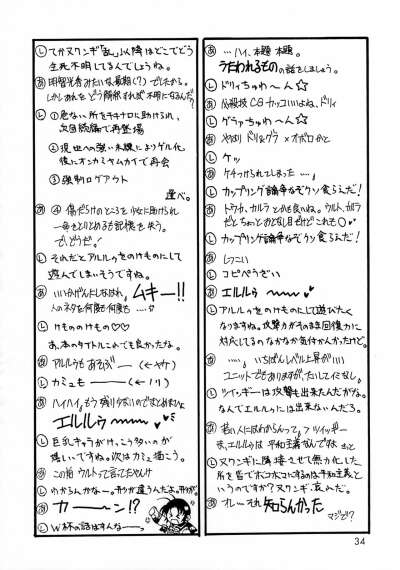 … ハイ、本題 本題。
うたわれるもの の話をしましょう。
ドリィちゅわ〜ん☆
必殺技CGカッコいいよね、ドリィ
グラァちゅわ〜ん☆
やはりドリィグラ×オボロかと
ケッ
ケチつけられてしまった……。
カップリング論争なぞクソ食らえだ!
トウカ、カルラとかも良いね。ウルト、カルラ
カップリング論争なぞクソ食らえだ!
しつこい
コピペうざい
エルルゥ 〜〜〜♥
アルルゥをのけものにして遊びたく
なりますね。攻撃力がそのまま回復力に
対応してるのなかなか気付かんかったけど。
……いちばんレベル上昇が
ユニットでもありますが、たいしてイミなし
ツィッギーは攻撃も出来たんだがな。
なんでエルルゥには出来ないんだろ。
若い人にはわからんって。>ツィッギー
ま、エルルゥは 平和主義なんですねきっと
ヌワンギに降参させて無力化した
所を皆でボコボコにするのは平和主義と
いうのですか?ヌワンギ、哀れだ。
オレ…それ知らんかった
マジで!?
てかヌワンギ「乱」以降はどこでどう
生死不明してるんでしょうね。
明智光秀みたいな最期(?)でしたから。
しかしあれをどう解釈すれば不明になるんだ?
①危ない所をチキナロに助けられ、
次回続編で再登場
②現世への強い未練によりゲル化
後にオンカミヤムカイで再会
③強制ログアウト
選べ。
④ 傷だらけのところを少女に助けられ
一命をとりとめるも記憶を失う。
で、どうだ!
それだとアルルゥをのけものにして
遊んでしまいそうですね。
いいかげんにしなはれ、ムキー!!
人のネタを何度も何度も ……
けもののけもの♡♡
あ、本のタイトルこれでも良かったな。
アルルゥもあそぶ― (←ヤケ)
カミュも ――― (←ノリ)
ハイハイ。もう残り少ないのでまとめまひょ
エルルゥ 〜〜〜♥
巨乳キャラがけっこう多いのが
嬉しいですね。次はカミュ描こう。
この前 ウルトって言ってたやんけ
わからんかなー。形が違うんだよ、形が。
カーーン!?
W杯の話はすんなーっ
34